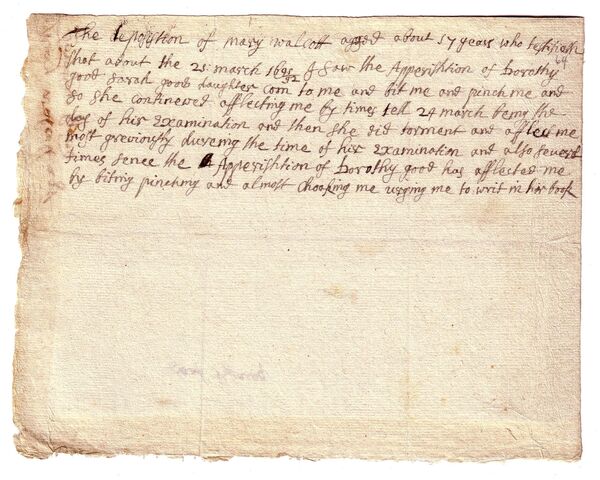 The deposistion of mary walcott agged about 17 years who testifieth
that about the 21: march 1691/92 I saw the Apperishtion of Dorothy
good sarah goods daughter com to me and bit me and pinch me and
so she contineued afflecting me by times tell 24 march being the
day of hir examination and then she did torment and afflect me
most greviously dureing the time of hir examination and also severall
times sence the Apperishtion of Dorothy good has afflected me
by biting pinching and almost choaking me urging me to writ in hir book
64